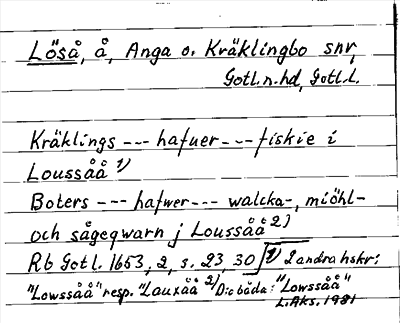 Löså, å, Anga o. Kräklingbo snr,
Gotl.n.hd, Gotl.l.
Kräklings --- hafuer --- fiskie i
Loussåå 1)
Boters --- hafwer --- walcka-, miöhl-
och sågeqwarn j Loussåå 2)
Rb Gotl. 1653, 2, s. 23, 30] 1) 2 andra hskr:
"Lowssåå" resp. "Lauxåå" 2) De båda: "Lowssåå"
L.Aks. 1981